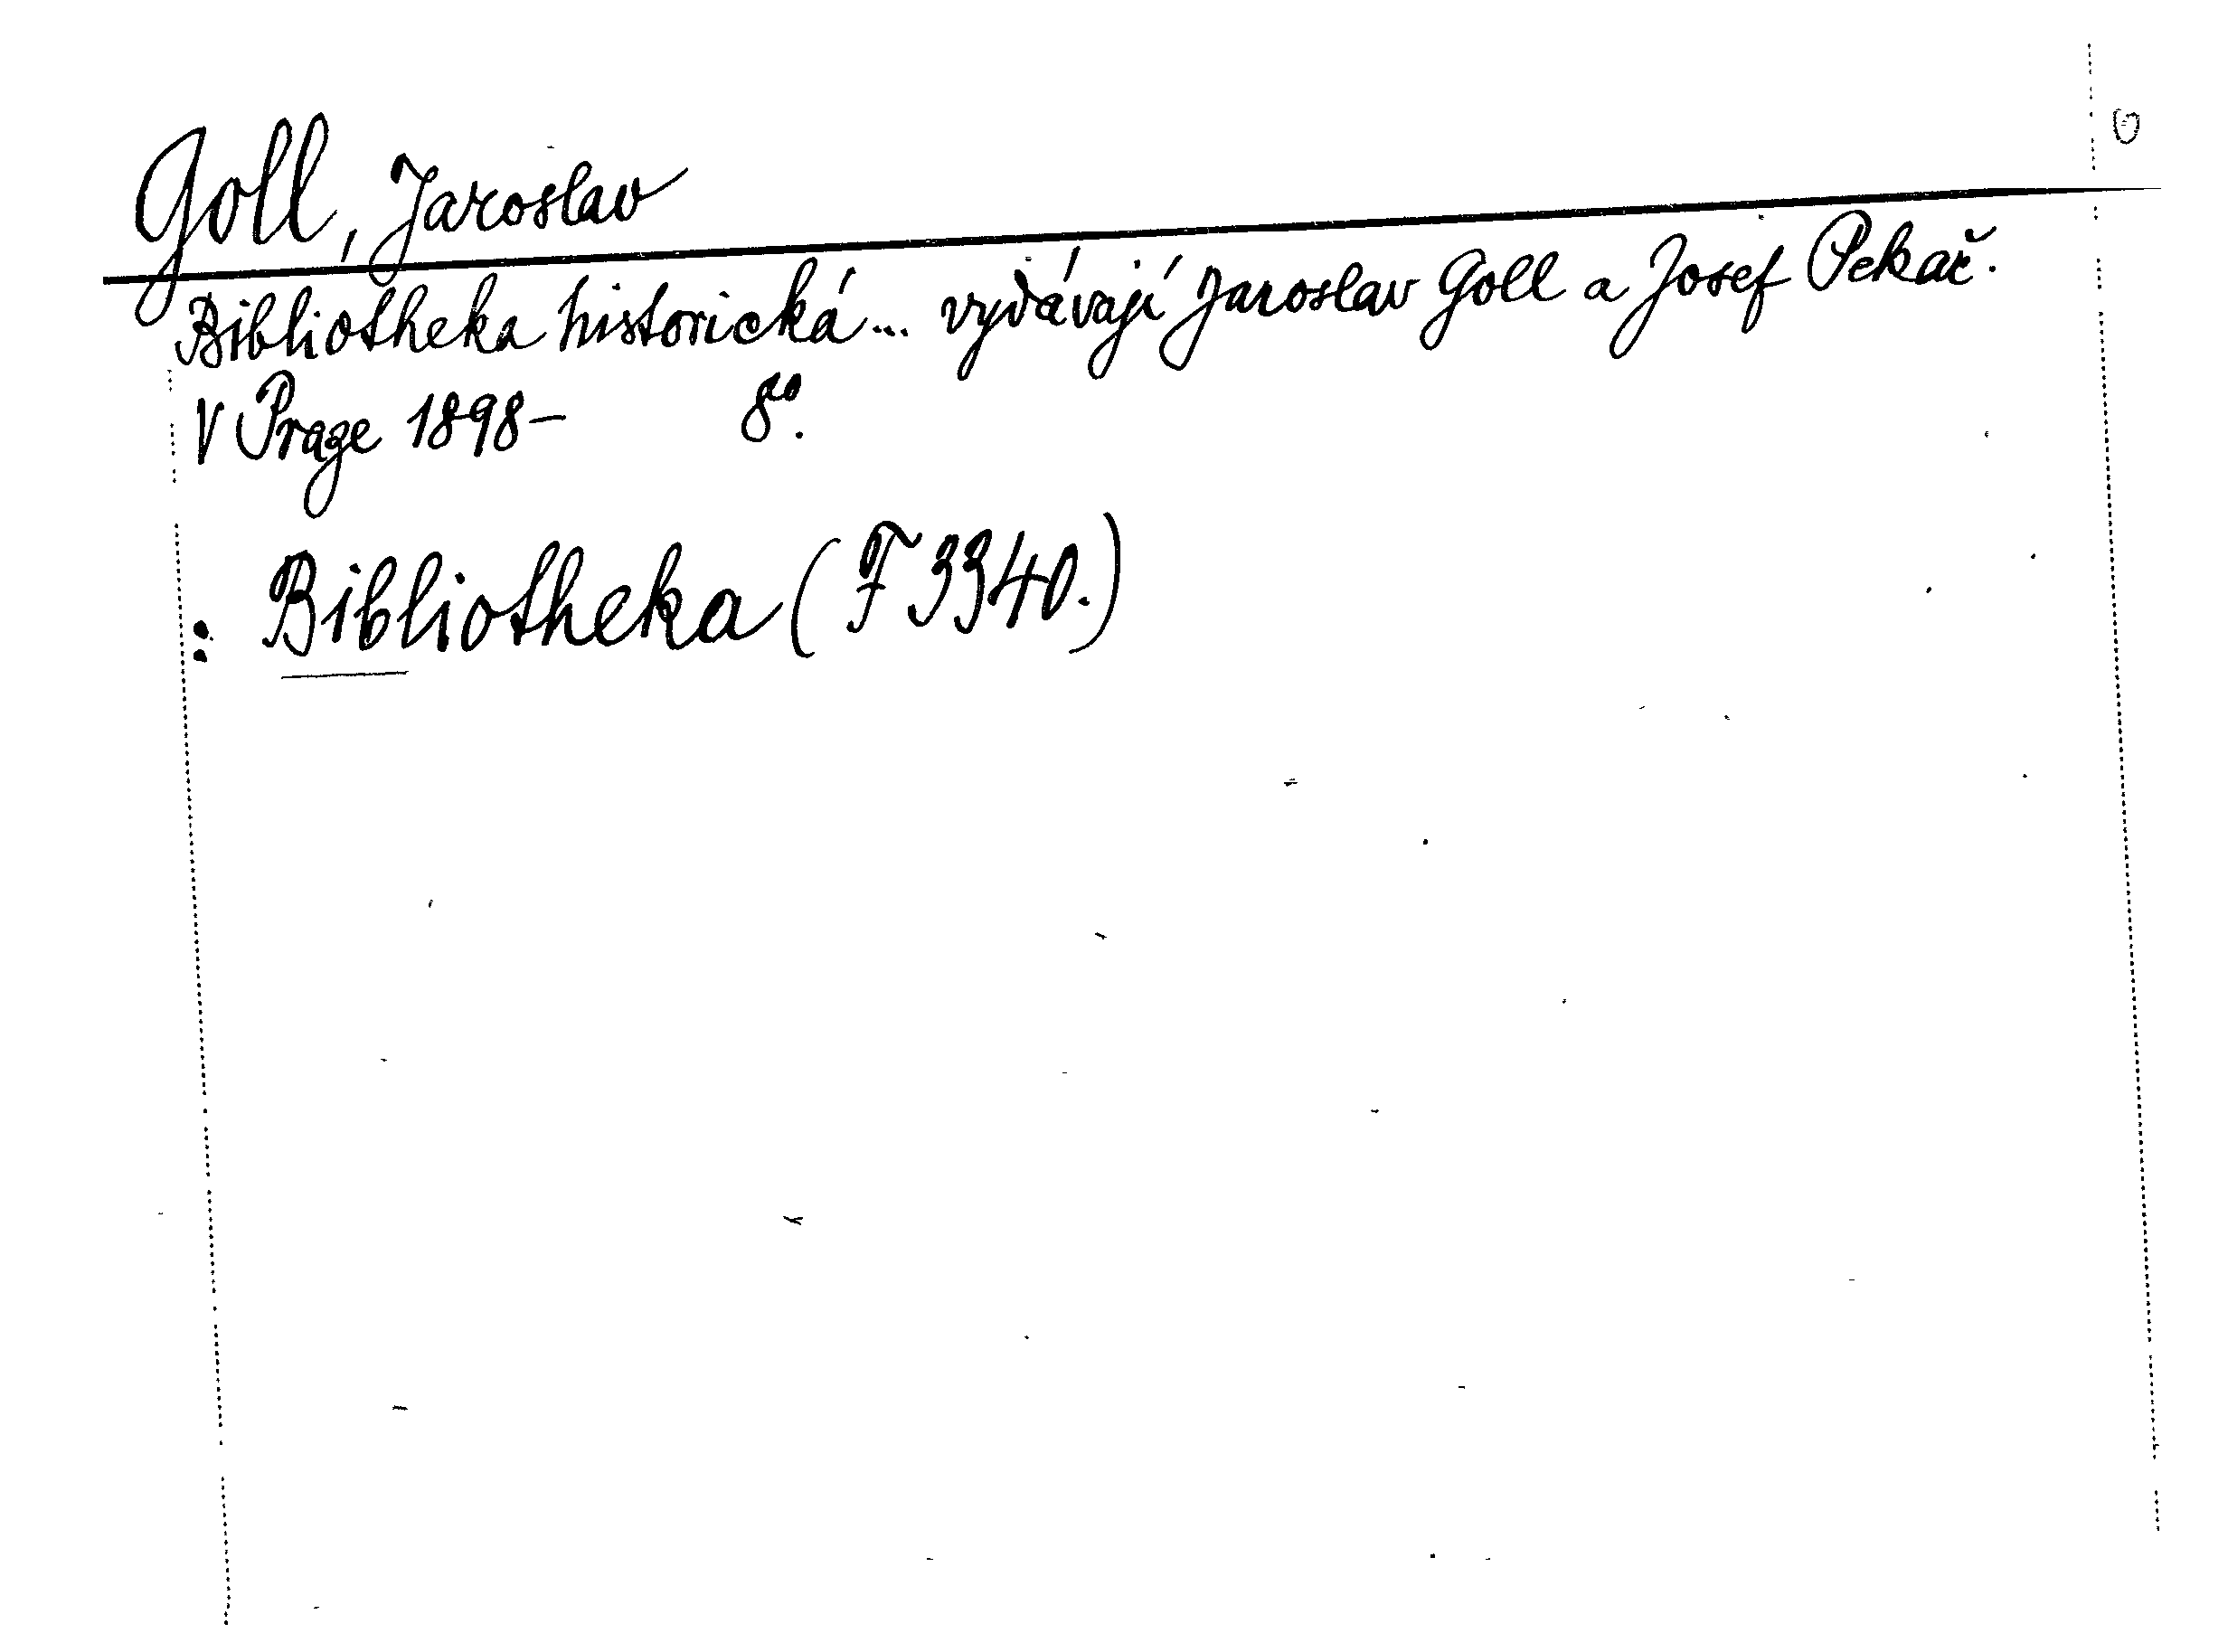 Goll, Jaroslav
Bibliotheka historická... vydávají Jaroslav Goll a Josef Pekař.
V Praze 1898- 8º.
: Bibliotheka (F 3340.)